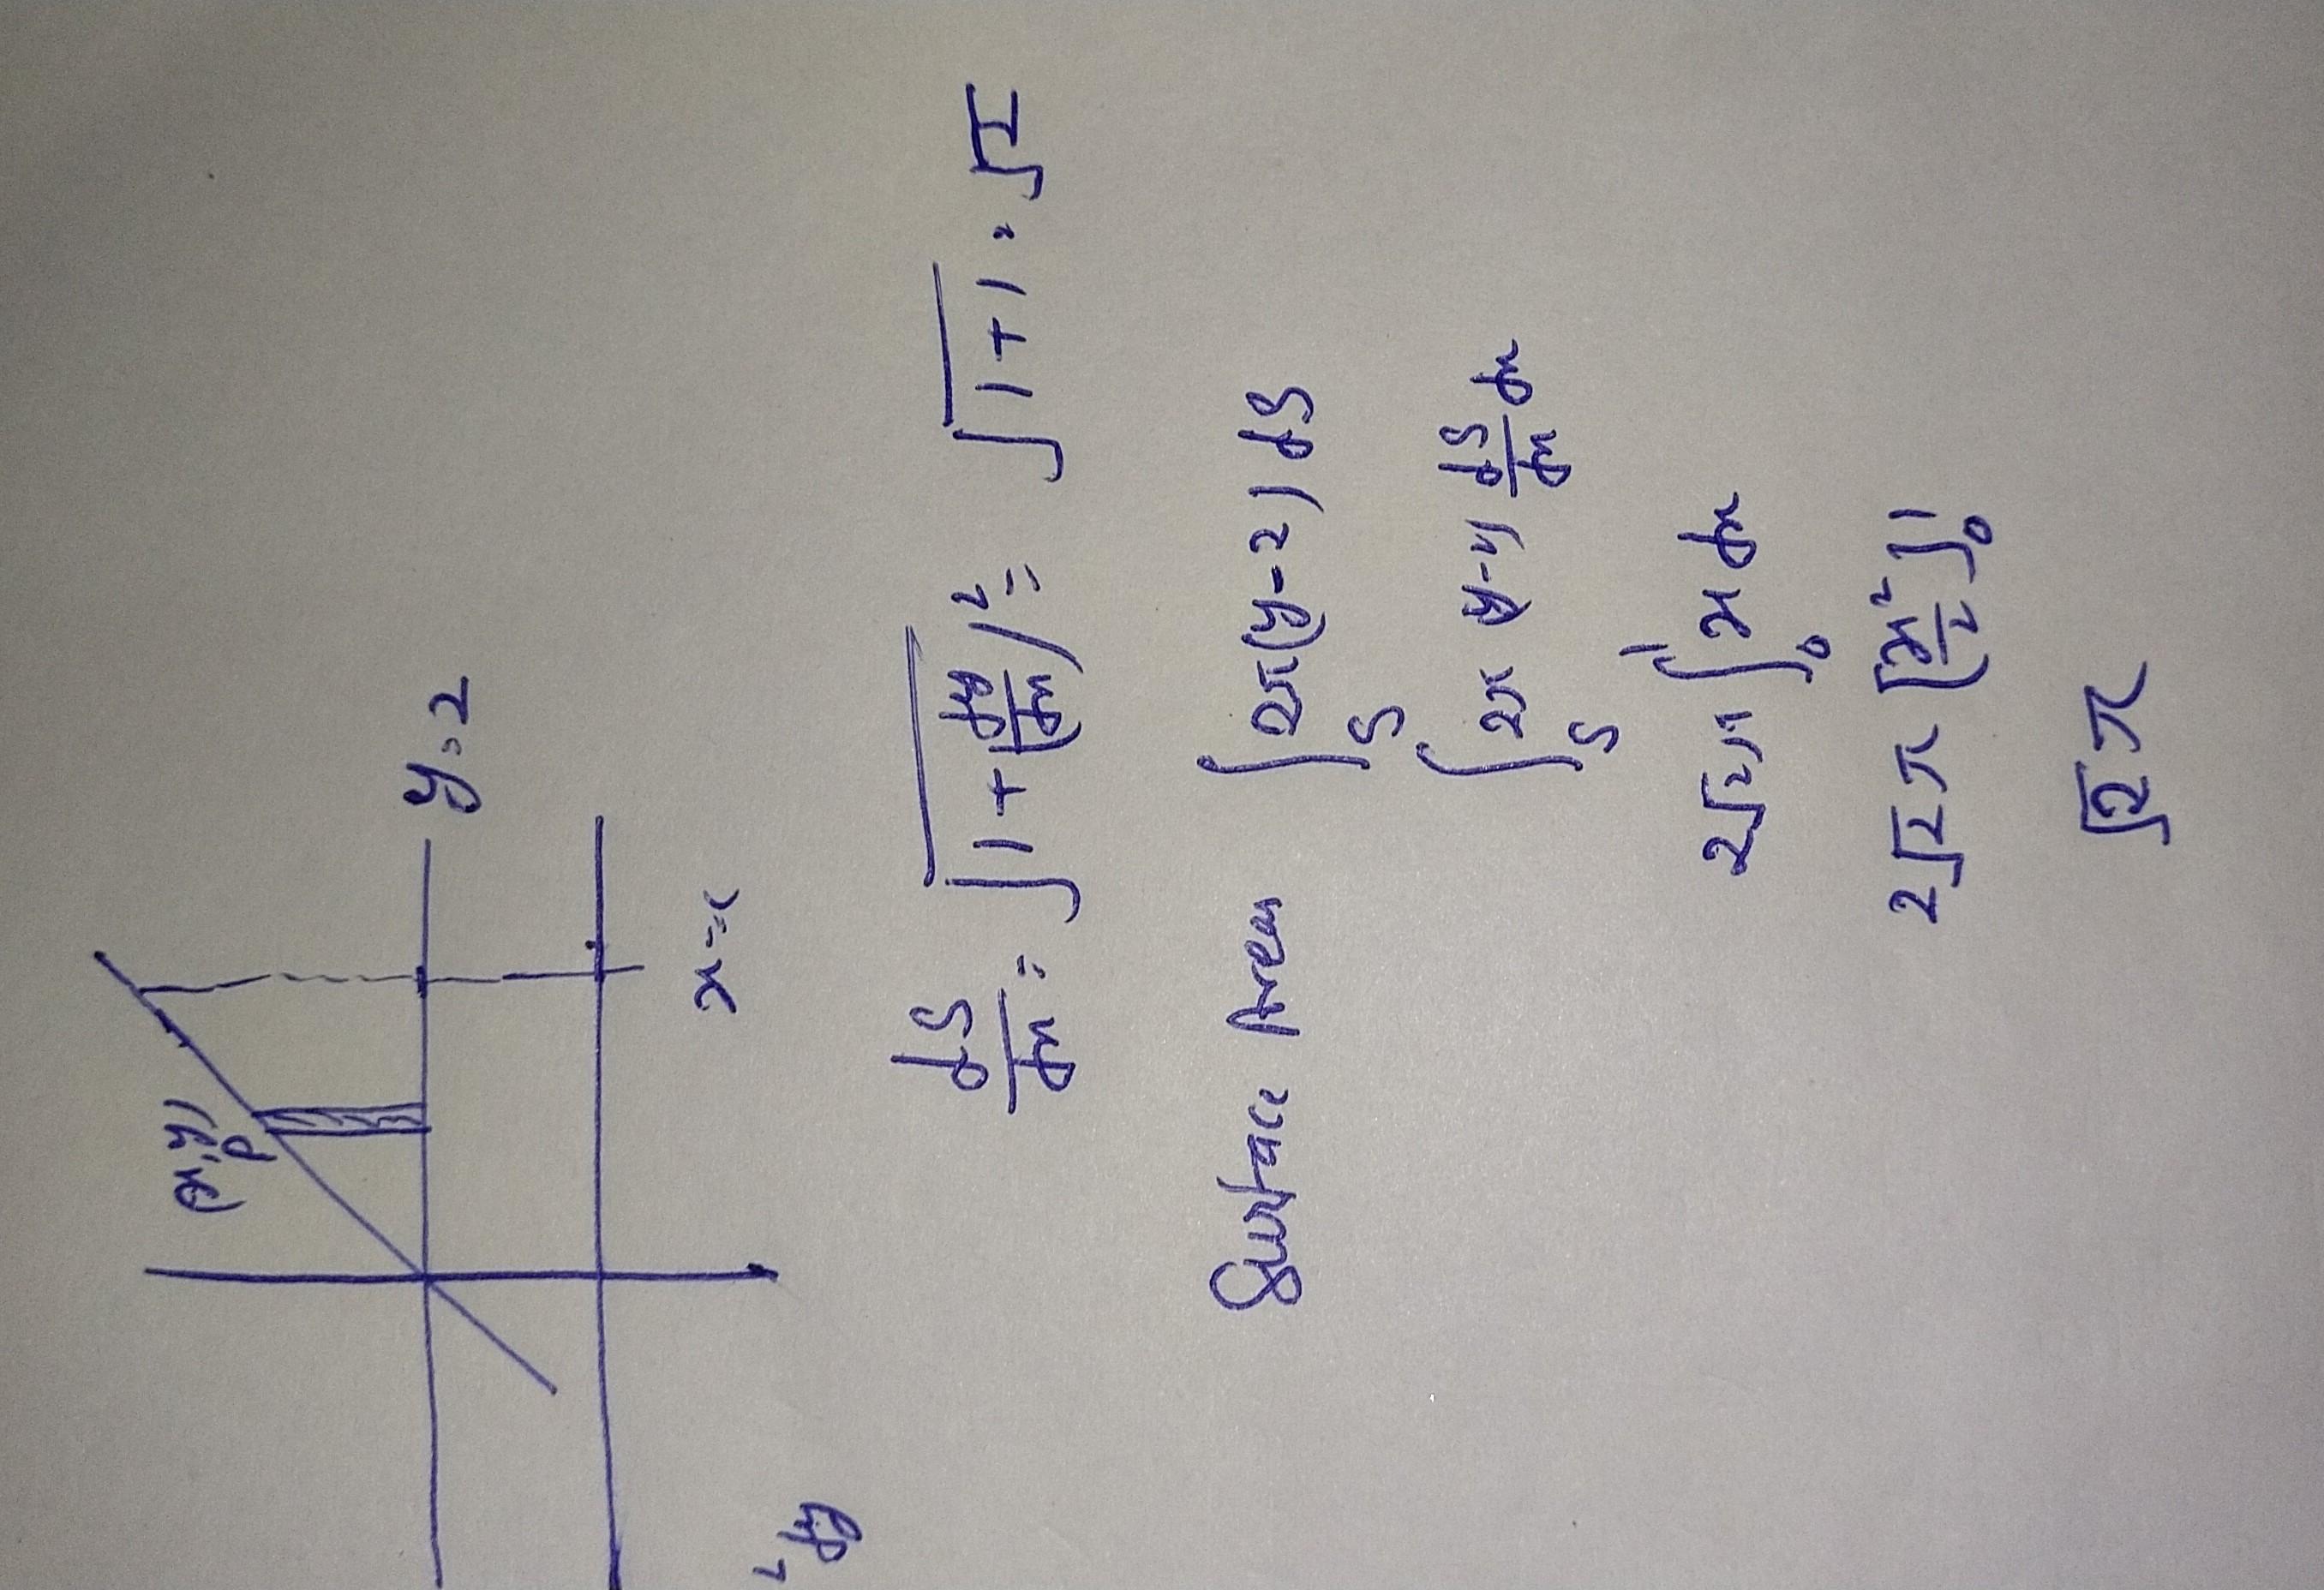 (x,y)
P
y=2
x=1
dy
dS/dx = √(1+(dy/dx)²) = √(1+1) = √2
Surface Area ∫_S 2π(y-2) dS
∫_S 2π (y-2) dS/dx dx
2√2 π ∫_0^1 x dx
2√2 π [x²/2]_0^1
√2 π